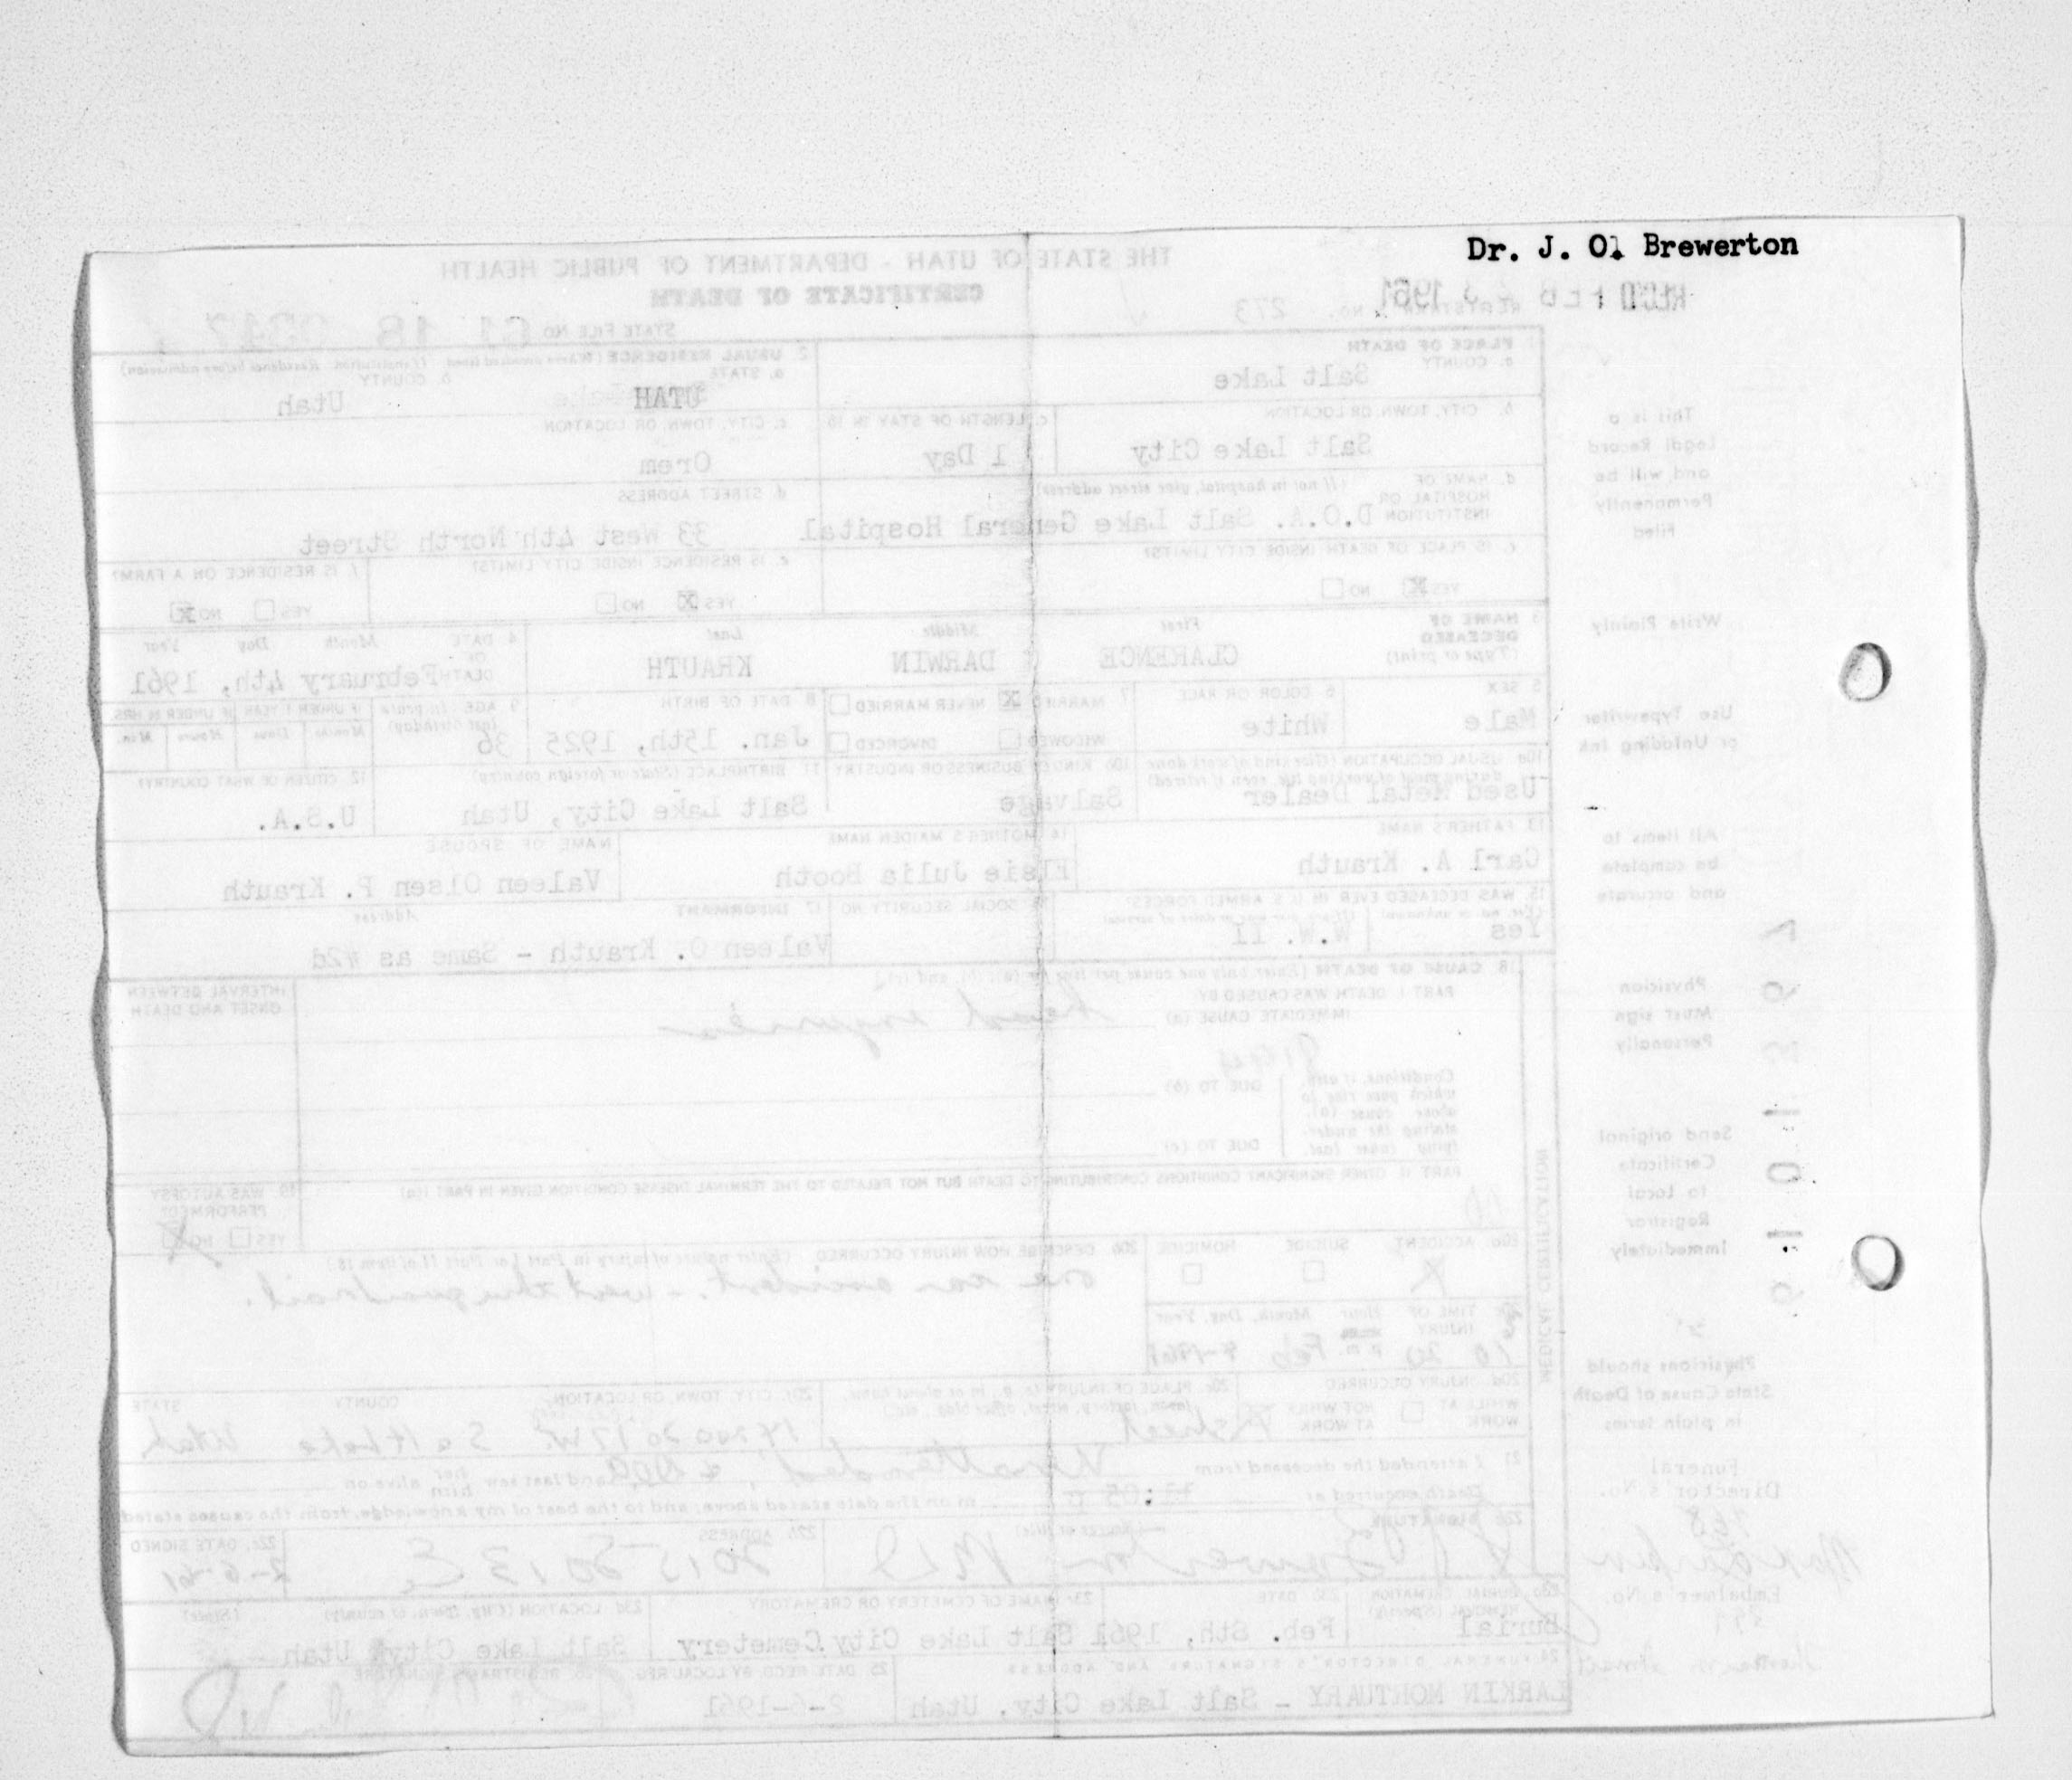 Dr. J. O. Brewerton
REC'D FEB 1961
THE STATE OF UTAH - DEPARTMENT OF PUBLIC HEALTH
CERTIFICATE OF DEATH
REGISTRAR'S NO. 273
STATE FILE NO 61 18 0317
1 PLACE OF DEATH
a. COUNTY Salt Lake
2. USUAL RESIDENCE (Where deceased lived. If institution: Residence before admission)
a. STATE UTAH
b. COUNTY Utah
b. CITY, TOWN, OR LOCATION
Salt Lake City
c. LENGTH OF STAY IN 1b
1 Day
c. CITY, TOWN, OR LOCATION
Orem
d. NAME OF HOSPITAL OR INSTITUTION (If not in hospital, give street address)
D.O.A. Salt Lake General Hospital
d. STREET ADDRESS
33 West 4th North Street
e. IS PLACE OF DEATH INSIDE CITY LIMITS?
YES NO
e. IS RESIDENCE INSIDE CITY LIMITS?
YES NO
f. IS RESIDENCE ON A FARM?
YES NO
3 NAME OF DECEASED (Type or print)
First Middle Last
CLARENCE DARWIN KRAUTH
4 DATE OF DEATH Month Day Year
February 4th, 1961
5 SEX
Male
6 COLOR OR RACE
White
7 MARRIED NEVER MARRIED
WIDOWED DIVORCED
8 DATE OF BIRTH
Jan. 15th, 1925
9 AGE (In years last birthday)
36
IF UNDER 1 YEAR IF UNDER 24 HRS.
Months Days Hours Min.
10a USUAL OCCUPATION (Give kind of work done during most of working life, even if retired)
Used Metal Dealer
10b KIND OF BUSINESS OR INDUSTRY
Salvage
11 BIRTHPLACE (State or foreign country)
Salt Lake City, Utah
12 CITIZEN OF WHAT COUNTRY?
U.S.A.
13 FATHER'S NAME
Carl A. Krauth
14 MOTHER'S MAIDEN NAME
Elsie Julia Booth
NAME OF SPOUSE
Valeen Olsen P. Krauth
15. WAS DECEASED EVER IN U.S. ARMED FORCES?
(Yes, no, or unknown) (If yes, give war or dates of service)
Yes W.W. II
16 SOCIAL SECURITY NO
17 INFORMANT Address
Valeen O. Krauth - Same as #2d
18 CAUSE OF DEATH (Enter only one cause per line for (a), (b), and (c).)
PART I DEATH WAS CAUSED BY
IMMEDIATE CAUSE (a) head injuries
INTERVAL BETWEEN ONSET AND DEATH
Conditions, if any, which gave rise to above cause (a), stating the underlying cause last.
DUE TO (b)
DUE TO (c)
PART II OTHER SIGNIFICANT CONDITIONS CONTRIBUTING TO DEATH BUT NOT RELATED TO THE TERMINAL DISEASE CONDITION GIVEN IN PART I(a)
19 WAS AUTOPSY PERFORMED?
YES NO
20a ACCIDENT SUICIDE HOMICIDE
20b DESCRIBE HOW INJURY OCCURRED (Enter nature of injury in Part I or Part II of item 18.)
one car accident. - went thru guardrail.
20c TIME OF INJURY Hour Month, Day, Year
10 20 p.m. Feb
20d INJURY OCCURRED
WHILE AT WORK NOT WHILE AT WORK
20e. PLACE OF INJURY (e.g., in or about home, farm, factory, street, office bldg., etc.)
Street
20f CITY, TOWN, OR LOCATION COUNTY STATE
Salt Lake Utah
21 I attended the deceased from Unattended and last saw her him alive on
Death occurred at 11:05 p m on the date stated above, and to the best of my knowledge, from the causes stated
22a SIGNATURE (Degree or title)
Brewerton MD
22b ADDRESS
2015 So 13 E.
22c. DATE SIGNED
2-6-61
23a BURIAL, CREMATION, REMOVAL (Specify)
Burial
23b DATE
Feb. 8th, 1961
23c NAME OF CEMETERY OR CREMATORY
Salt Lake City Cemetery
23d LOCATION (City, town, or county) (State)
Salt Lake City, Utah
24 FUNERAL DIRECTOR'S SIGNATURE AND ADDRESS
LARKIN MORTUARY - Salt Lake City, Utah
25 DATE RECD BY LOCAL REG.
2-6-1961
26 REGISTRAR'S SIGNATURE
MEDICAL CERTIFICATION
This is a
Legal Record
and will be
Permanently
Filed
Write Plainly
Use Typewriter
or Unfading Ink
All items to
be complete
and accurate
Physician
Must sign
Personally
Send original
Certificate
to Local
Registrar
Immediately
Physicians should
State Cause of Death
in plain terms
Funeral
Director's No.
768
Embalmer's No.